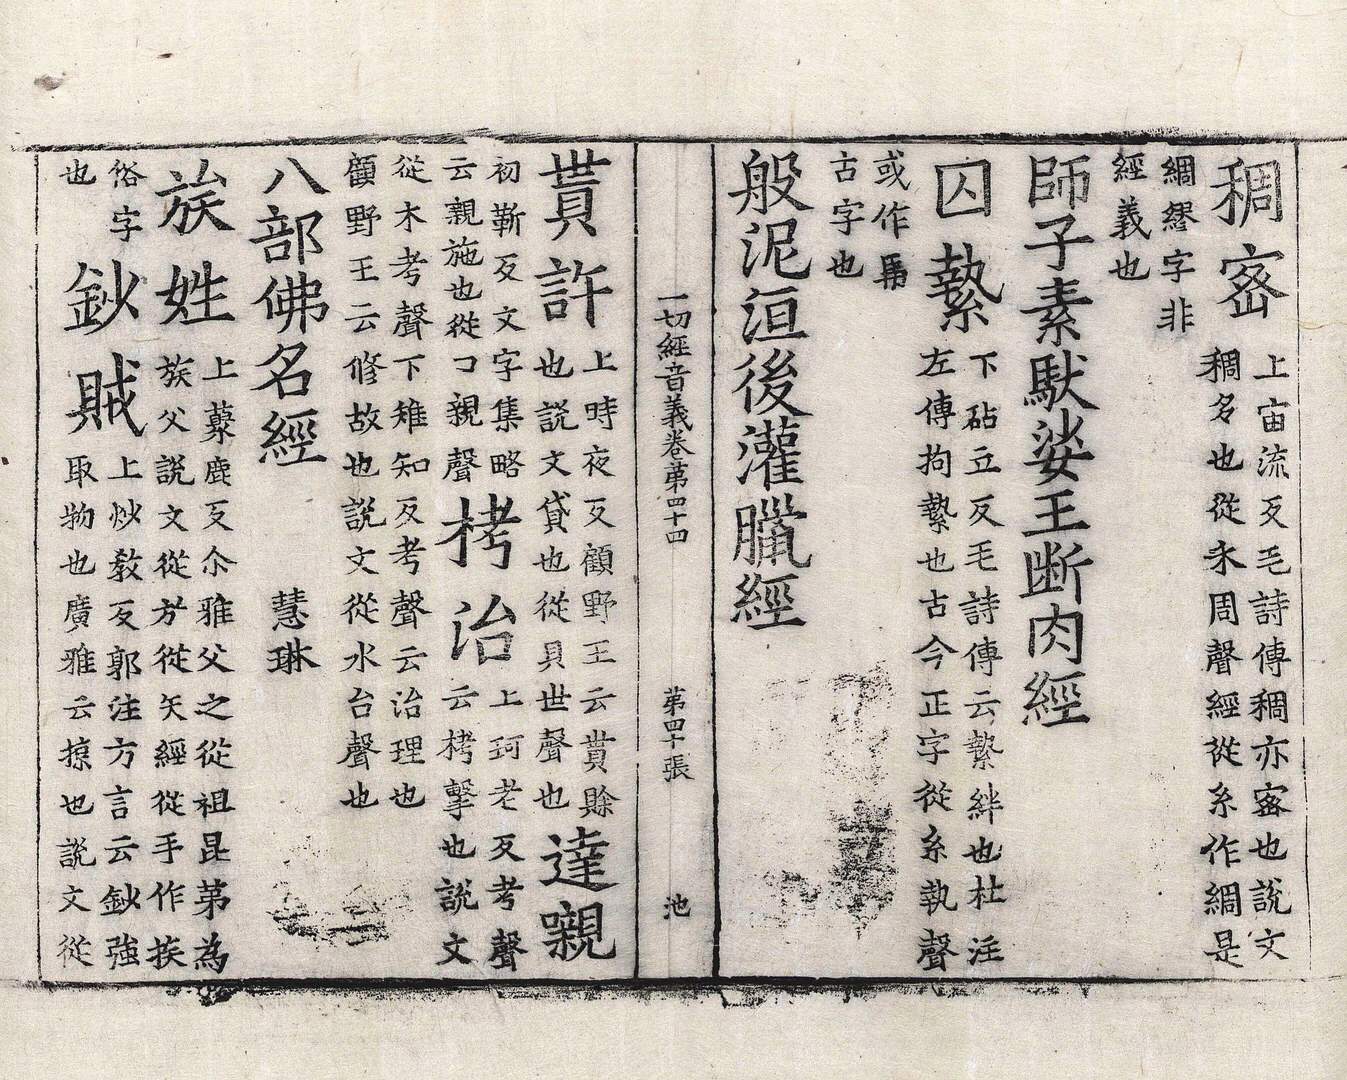 稠宻
上宙流反毛詩傳稠亦宻也說文
稠多也從禾周聲經從糸作綢是
綢繆字非
經義也
師子素馱娑王断肉經
囚縶
下砧立反毛詩傳云縶絆也杜注
左傳拘縶也古今正字從糸執聲
或作馽
古字也
般泥洹後灌臘經
一切經音義卷第四十四 第四十張 池
貰許
上時夜反顧野王云貰賒
也說文貸也從貝世聲也
達嚫
初靳反文字集略
云親施也從口親聲
栲治
上珂老反考聲
云栲擊也說文
從木考聲下雉知反考聲云治理也
顧野王云修故也說文從水台聲也
八部佛名經 慧琳
族姓
上藂鹿反尒雅父之從祖昆弟為
族父說文從㫃從矢經從手作挨
俗字
也
鈔賊
上炒教反郭注方言云鈔強
取物也廣雅云掠也說文從